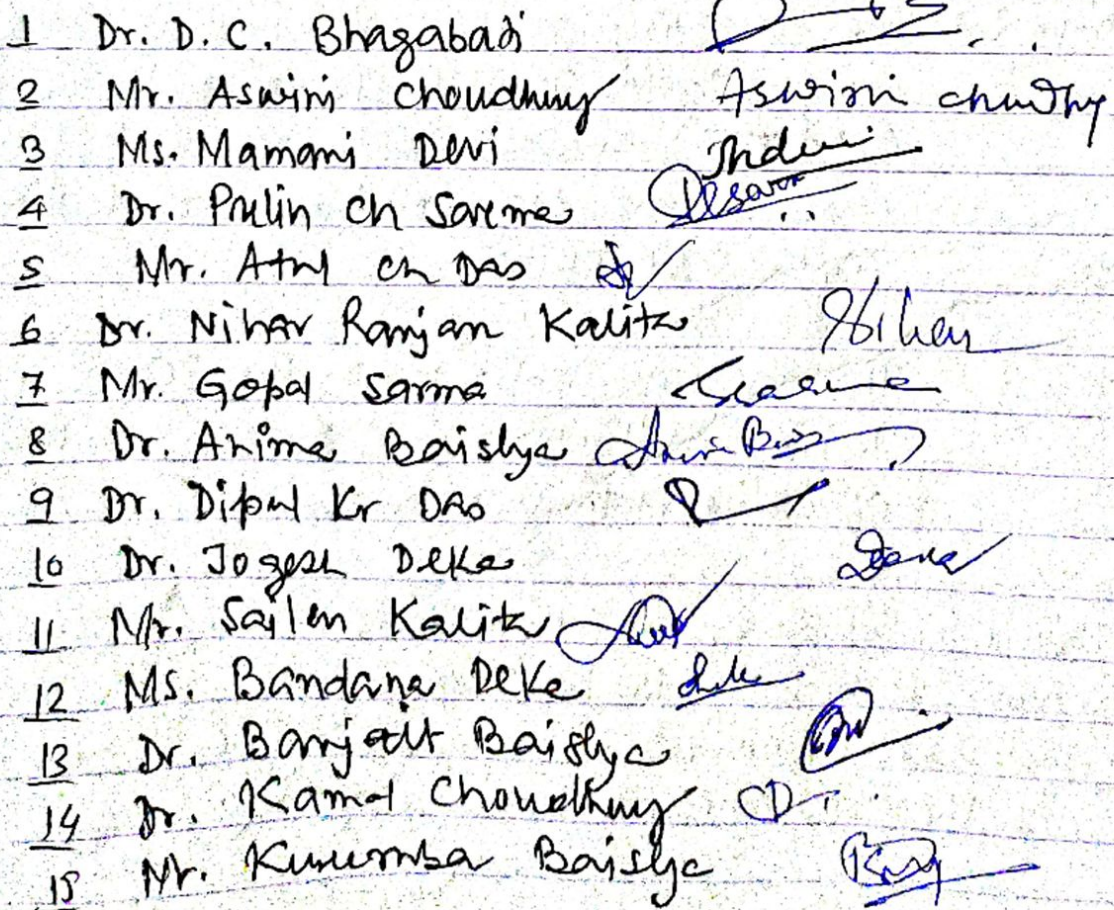 1 Dr. D. C. Bhagabati
2 Mr. Aswini Choudhury Aswini Choudhury
3 Ms. Mamani Devi
4 Dr. Pulin Ch Sarma
5 Mr. Atul Ch Das
6 Dr. Nihar Ranjan Kalita Nihar
7 Mr. Gopal Sarma
8 Dr. Anima Baishya
9 Dr. Dipul Kr Das
10 Dr. Jogesh Deka Deka
11 Mr. Sailen Kalita
12 Ms. Bandana Deka
13 Dr. Baishya
14 Dr. Kamal Choudhury
15 Mr. Baishya